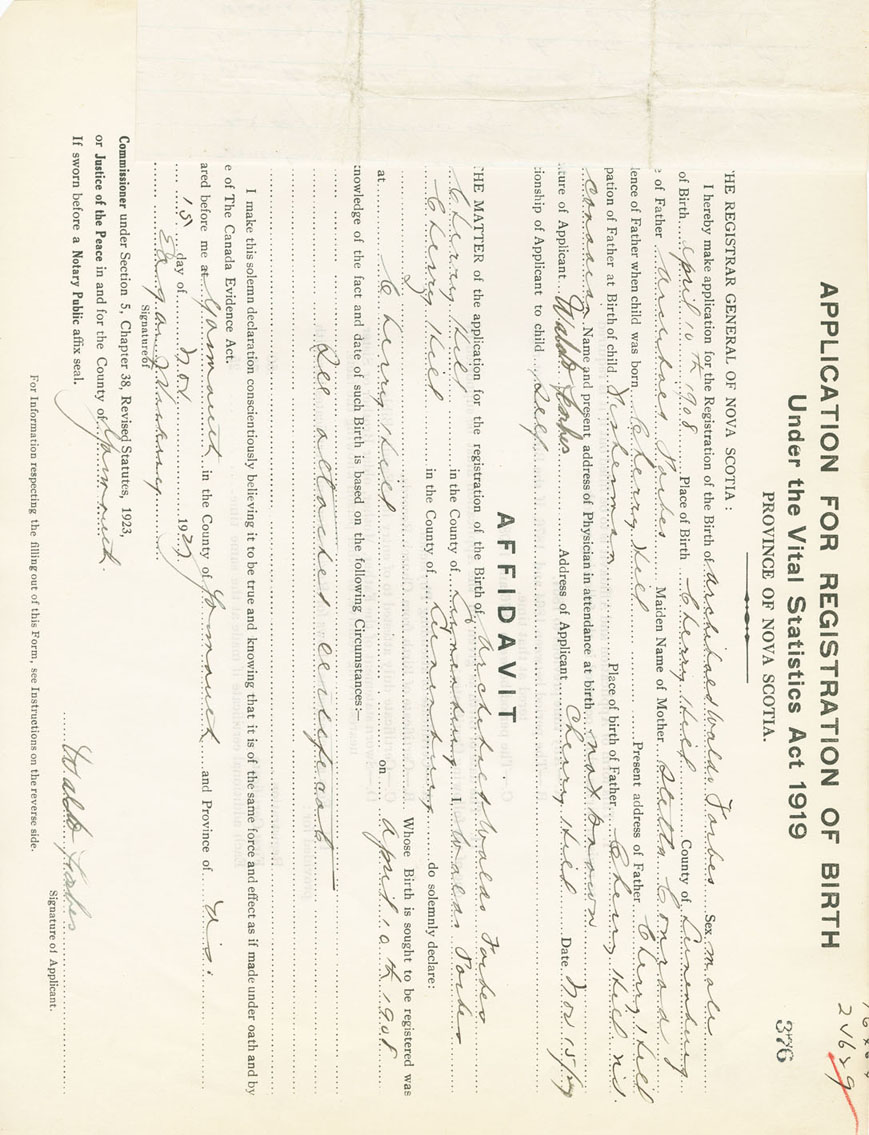 APPLICATION FOR REGISTRATION OF BIRTH
Under the Vital Statistics Act 1919
376
PROVINCE OF NOVA SCOTIA.
HE REGISTRAR GENERAL OF NOVA SCOTIA :
I hereby make application for the Registration of the Birth of Archibald Waldo Forbes Sex male
of Birth April 10th 1908 Place of Birth Cherry Hill County of Lunenburg
e of Father Archibald Forbes Maiden Name of Mother Conrad
lence of Father when child was born Cherry Hill Present address of Father Cherry Hill
pation of Father at Birth of child Fisherman Place of birth of Father Cherry Hill N.S.
Name and present address of Physician in attendance at birth not known
ture of Applicant Waldo Forbes Address of Applicant Cherry Hill Date Nov 15/27
tionship of Applicant to child Self
AFFIDAVIT.
HE MATTER of the application for the registration of the Birth of Archibald Waldo Forbes
Cherry Hill in the County of Lunenburg I, Waldo Forbes
Cherry Hill in the County of Lunenburg do solemnly declare:
Whose Birth is sought to be registered was
at Cherry Hill on April 10th 1908
knowledge of the fact and date of such Birth is based on the following Circumstances:—
See attached certificate
I make this solemn declaration conscientiously believing it to be true and knowing that it is of the same force and effect as if made under oath and by
e of The Canada Evidence Act.
ared before me at Yarmouth in the County of Yarmouth and Province of N.S.
15 day of Nov 1927
Signature of
Commissioner under Section 5, Chapter 38, Revised Statutes, 1923,
or Justice of the Peace in and for the County of Yarmouth
If sworn before a Notary Public affix seal.
Waldo Forbes
Signature of Applicant.
For Information respecting the filling out of this Form, see Instructions on the reverse side.